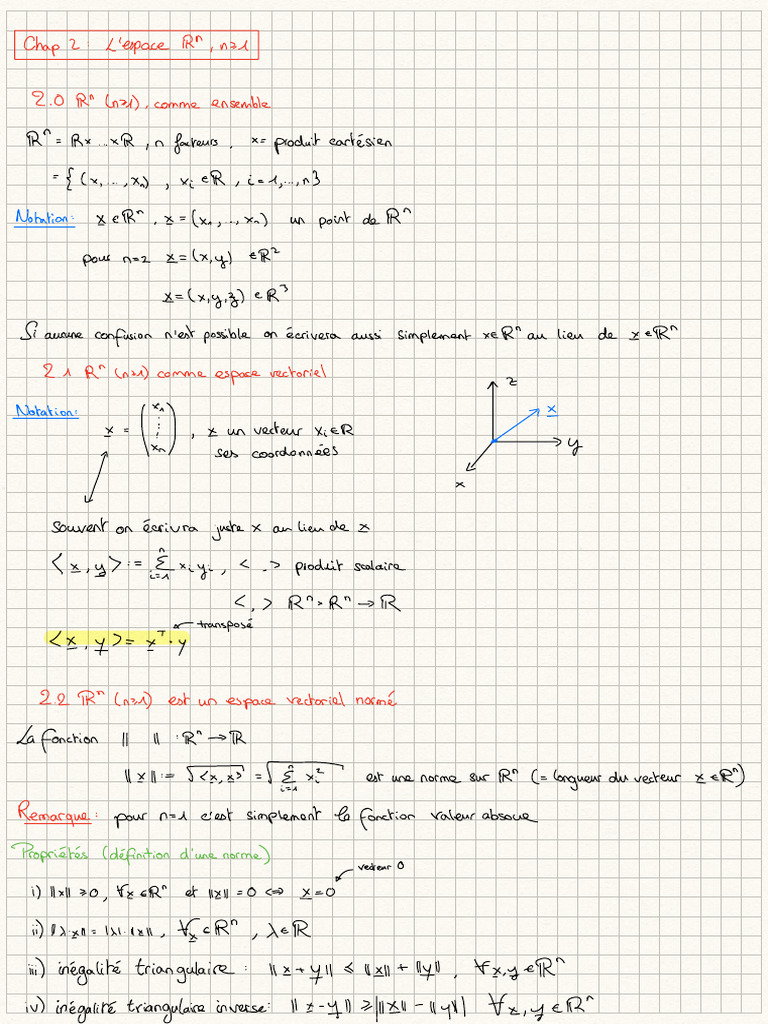 Chap 2 : L'espace ℝⁿ, n≥1
2.0 ℝⁿ (n≥1), comme ensemble
ℝⁿ = ℝ×...×ℝ, n facteurs, x = produit cartésien
= { (x,...,xₙ), xᵢ ∈ ℝ, i=1,...,n}
Notation: x̲ ∈ ℝⁿ, x̲ = (x₁,..,xₙ) un point de ℝⁿ
pour n=2 x̲ = (x,y) ∈ ℝ²
x̲ = (x,y,z) ∈ ℝ³
Si aucune confusion n'est possible on écrivera aussi simplement x∈ℝⁿ au lieu de x̲ ∈ ℝⁿ
2.1 ℝⁿ (n≥1) comme espace vectoriel
z
x̲
y
x
Notation: x̲ = (x₁ ⋮ xₙ), x̲ un vecteur xᵢ∈ℝ
ses coordonnées
souvent on écrivra juste x au lieu de x̲
<x̲, y̲> := Σⁿᵢ₌₁ xᵢ yᵢ, < .,> produit scalaire
<,> ℝⁿ × ℝⁿ → ℝ
transposé
<x̲, y̲> = x̲ᵀ · y
2.2 ℝⁿ (n≥1) est un espace vectoriel normé
La fonction || || : ℝⁿ → ℝ
||x̲|| := √<x̲,x̲> = √Σⁿᵢ₌₁ xᵢ² est une norme sur ℝⁿ (= longueur du vecteur x̲ ∈ ℝⁿ)
Remarque: pour n=1 c'est simplement la fonction valeur absolue
Propriétés (définition d'une norme)
vecteur 0
i) ||x|| ≥ 0, ∀x̲ ∈ ℝⁿ et ||x̲|| = 0 ⇔ x̲ = 0
ii) ||λ·x̲|| = |λ|·||x̲||, ∀x̲ ∈ ℝⁿ, λ∈ℝ
iii) inégalité triangulaire : ||x̲ + y̲|| ≤ ||x̲|| + ||y̲||, ∀x̲,y̲ ∈ ℝⁿ
iv) inégalité triangulaire inverse: ||x̲ - y̲|| ≥ | ||x̲|| - ||y̲|| | ∀x̲, y̲ ∈ ℝⁿ